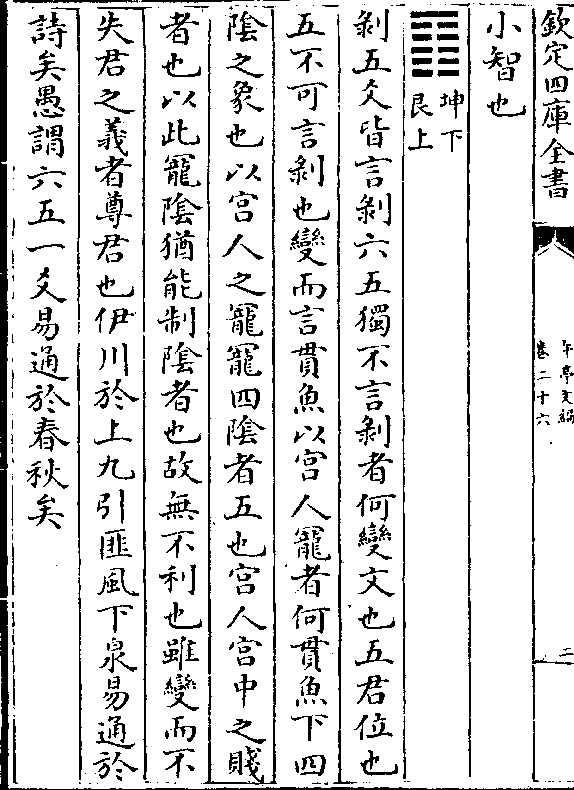 欽定四庫全書
午亭文編
卷二十六
二
小智也
坤下
艮上
剝五爻皆言剝六五獨不言剝者何變文也五君位也
五不可言剝也變而言貫魚以宮人寵者何貫魚下四
陰之象也以宮人之寵寵四陰者五也宮人宮中之賤
者也以此寵陰猶能制陰者也故無不利也雖變而不
失君之義者尊君也伊川於上九引匪風下泉易通於
詩矣愚謂六五一爻易通於春秋矣